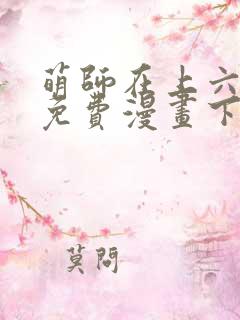 萌師在上六
免費漫畫下
莫問